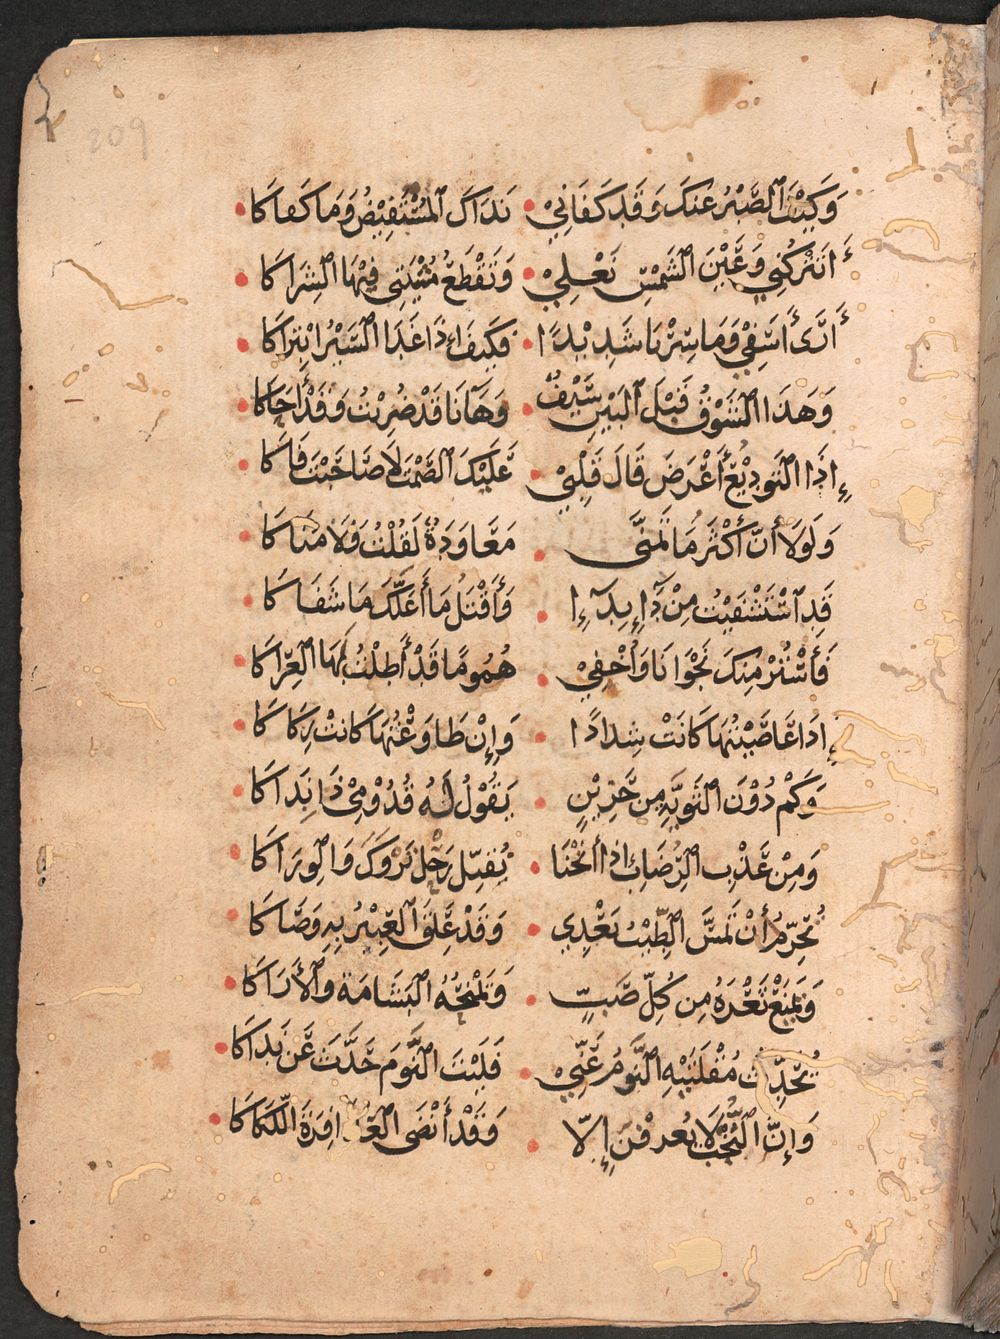 209
وَكَيْفَ ٱلصَّبْرُ عَنكَ وَقَد كَفَانِيْ • نَدَاكَ ٱلمُسْتَفِيْضُ وَمَا كَفاكَا •
أَتَتْرُكُنِي وَعَيْنَ الشَمْسِ نَعْلِيْ • وَتَقْطَعُ مُشْيَتِي فِيْهَا الشِرَاكَا •
أَرَىٰ أَسَفِيْ وَمَا سِرْنا شَدِيْدًا • فكَيفَ إذَا غَدَا السَيْرُ ابْتِرَاكَا •
وَهَذَا الشَوْقُ قَبْلَ ٱلبَيْنِ سَيْفٌ • وَهَآنَا قَدْ ضُرِبْتُ وَقَدْ أَحَاكَا •
إِذَا التَودِيْعُ أَعْرَضَ قَالَ قَلْبِيْ • عَلَيْكَ ٱلصَّمْتَ لَا صَاحَبْتَ فَاكَا •
وَلَولَا أَنَّ أَكْثَرَ مَا تَمَنَّى • مَعَاوَدَةٌ لَقُلْتُ وَلَا مُنَاكَا •
قَدِ ٱسْتَشْفَيْتَ مِنْ دَآءٍ بِدَآءٍ • وَأَقْتَلُ مَا أَعَلَّكَ مَا شَفَاكَا •
فَأَسْتُرُ مِنكَ نَجْوَانَا وَأُخْفِيْ • هُمُومًا قَدْ أَطَلْتُ لَهَا العِرَاكَا •
إِذَا عَاصَيْتُهَا كَانَتْ شِدَادًا • وَإِنْ طَاوَعْتُهَا كَانتْ رِكَاكَا •
وَكَمْ دُوْنَ الثَوِيَّةِ مِن حَزِيْنٍ • يَقُوْلُ لَهُ قُدُوْمِيْ ذَا بِذَاكَا •
وَمِنْ عَذْبِ الرُضَابِ إِذا أَنَخْنَا • يُقَبِّل رَحْلَ تُرْوَكَ وَالوِرَاكَا •
يُحَرِّمُ أَنْ تَمَسَّ الطِيْبَ بَعْدِي • وَقَدْ عَلِقَ ٱلعَبِيْرُ بِهِ وَصَاكَا •
وَيَمْنَعُ ثَغْرَهُ مِن كُلِّ صَبٍّ • وَيَمْنَحُهُ البَشَامَةَ وٱلأَرَاكَا •
يُحَدِّثُ مُقْلَتَيْهِ النَّومُ عَنِّيْ • فَلَيْتَ النَّومَ حَدَّثَ عَن نَدَاكَا •
وَإِنَّ البُخْتَ لَا يُعْرِقْنَ إِلَّا • وَقَدْ أَنْضَى العُذَافِرَةَ اللكَاكَا •